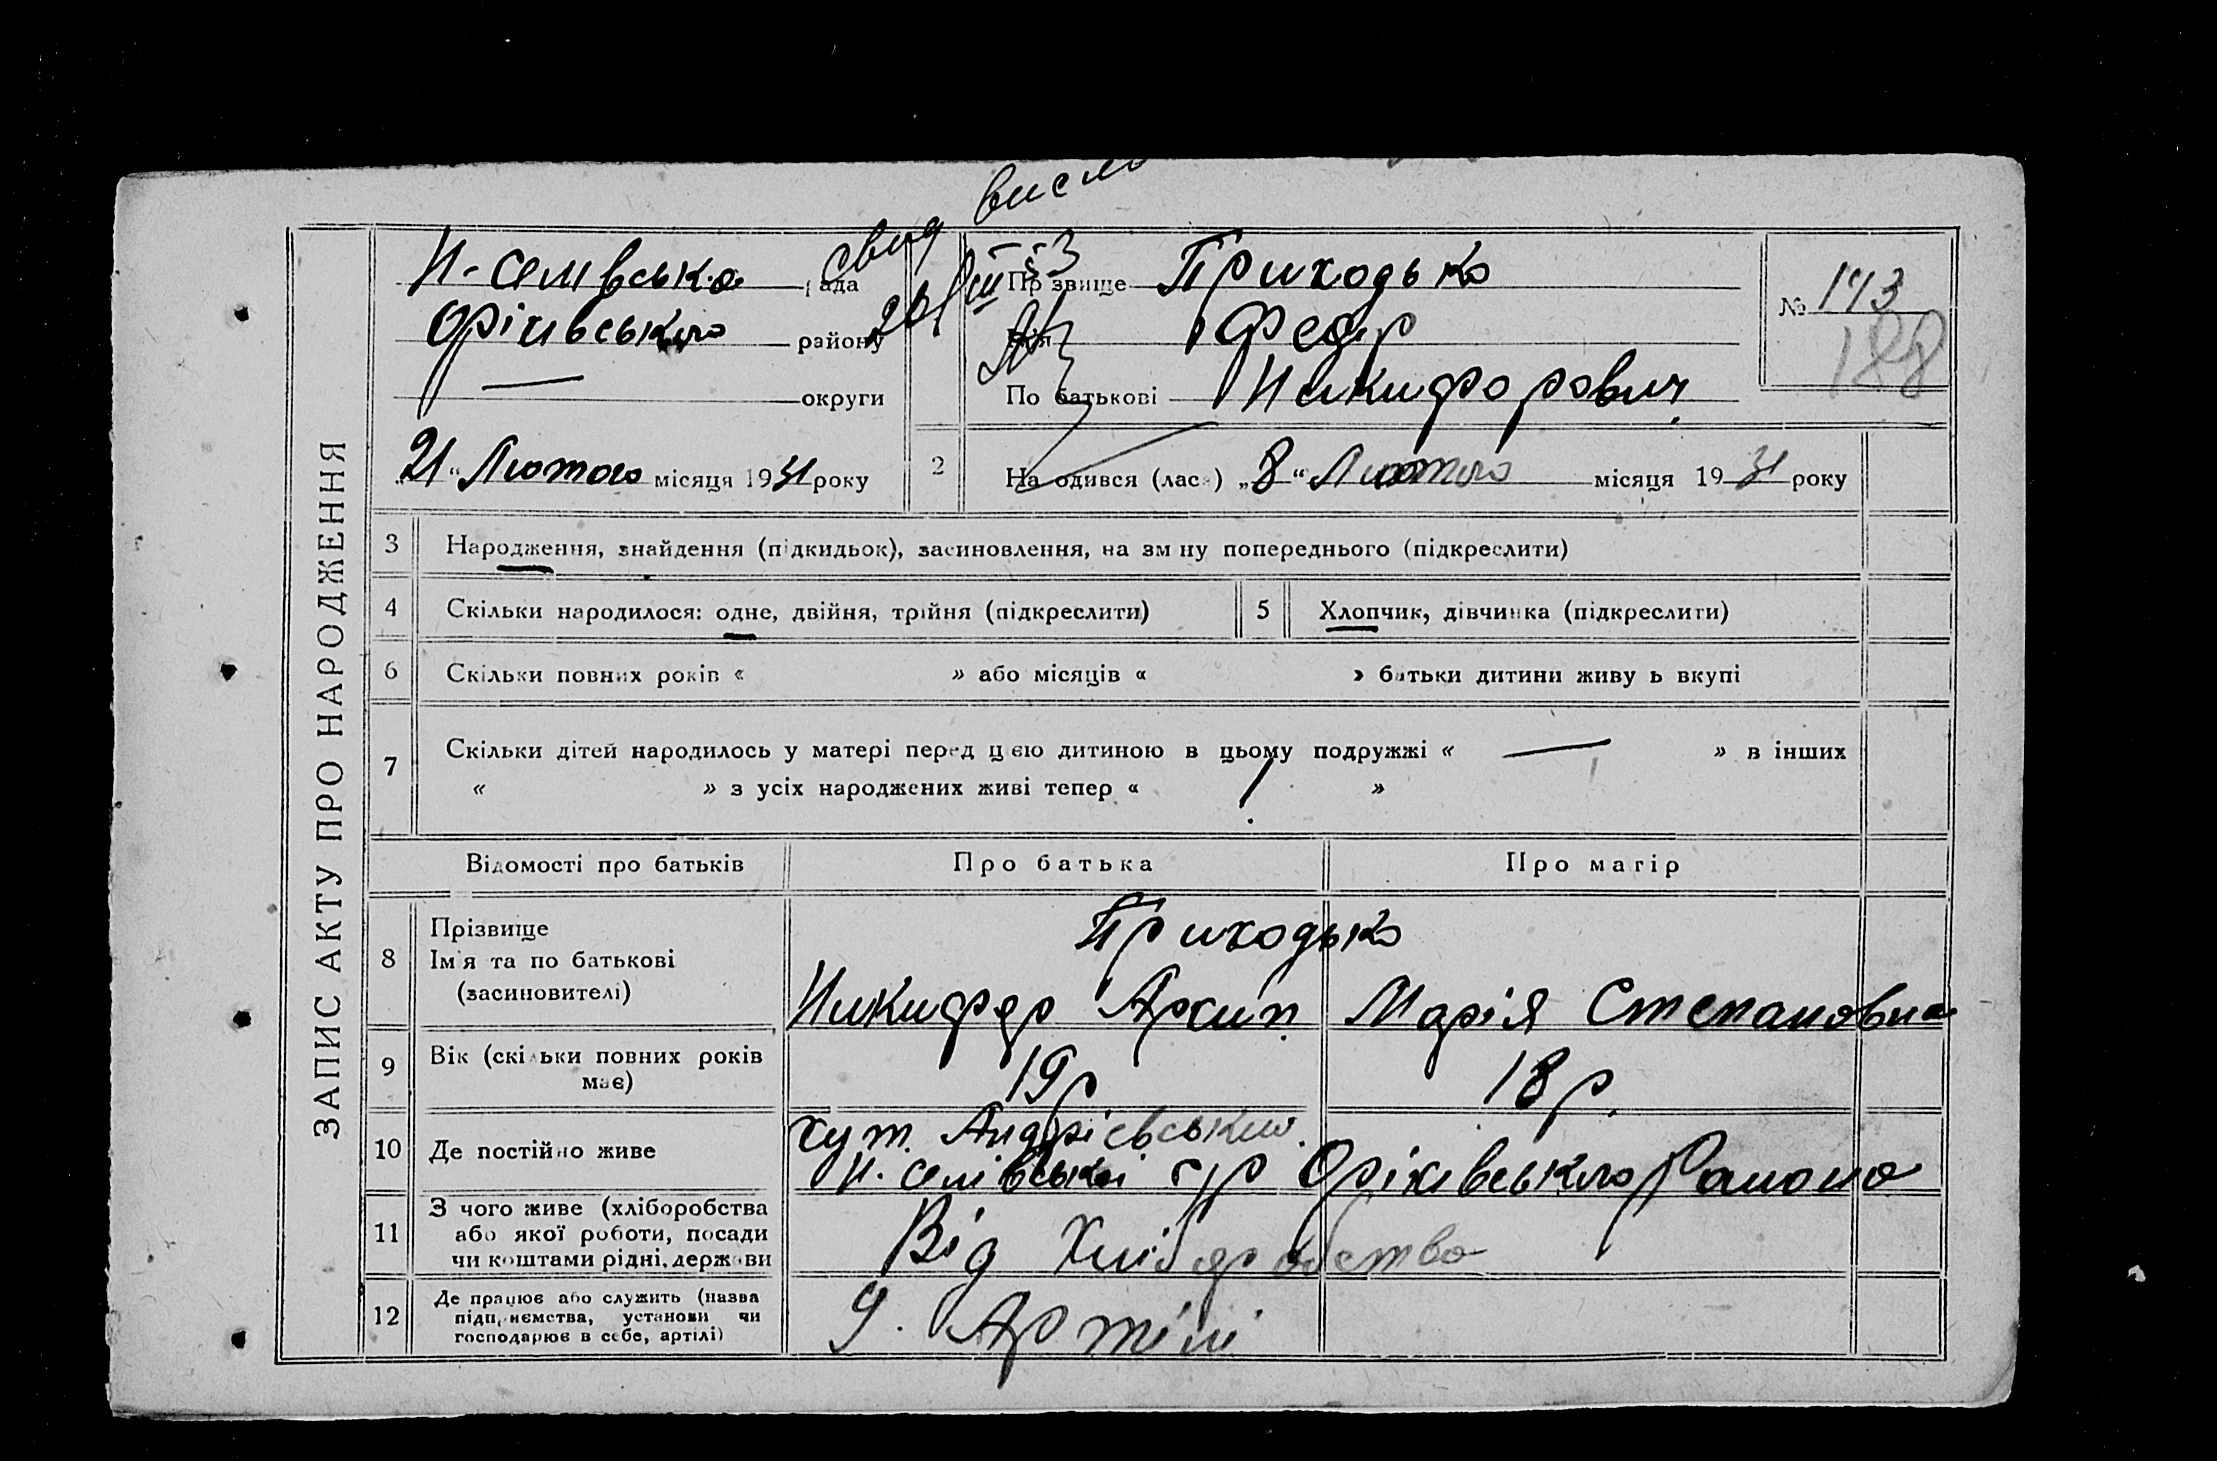 свид высл
24/VIII-53
ЗАПИС АКТУ ПРО НАРОДЖЕННЯ
Н-Селівська рада
Оріхівського району
— округи
„21“ Лютого місяця 1931 року
Прізвище Приходько
Ім'я Федір
По батькові Никифорович
№ 143
188
2 Народився (лась) „8“ Лютого місяця 1931 року
3 Народження, знайдення (підкидьок), засиновлення, на зміну попереднього (підкреслити)
4 Скільки народилося: одне, двійня, трійня (підкреслити)
5 Хлопчик, дівчинка (підкреслити)
6 Скільки повних років « » або місяців « » батьки дитини живуть вкупі
7 Скільки дітей народилось у матері перед цією дитиною в цьому подружжі « — » в інших
« » з усіх народжених живі тепер « 1 »
Відомості про батьків Про батька Про матір
8 Прізвище
Ім'я та по батькові
(засиновителі)
Приходько
Никифор Архип. Марія Степановна
9 Вік (скільки повних років
має)
19р 18р.
10 Де постійно живе
хут. Андрієвський.
Н. Селівської с/р Оріхівського Району
11 З чого живе (хліборобства
або якої роботи, посади
чи коштами рідні, держави
Від Хліборобства
12 Де працює або служить (назва
підприємства, установи чи
господарює в себе, артілі)
У. Артілі